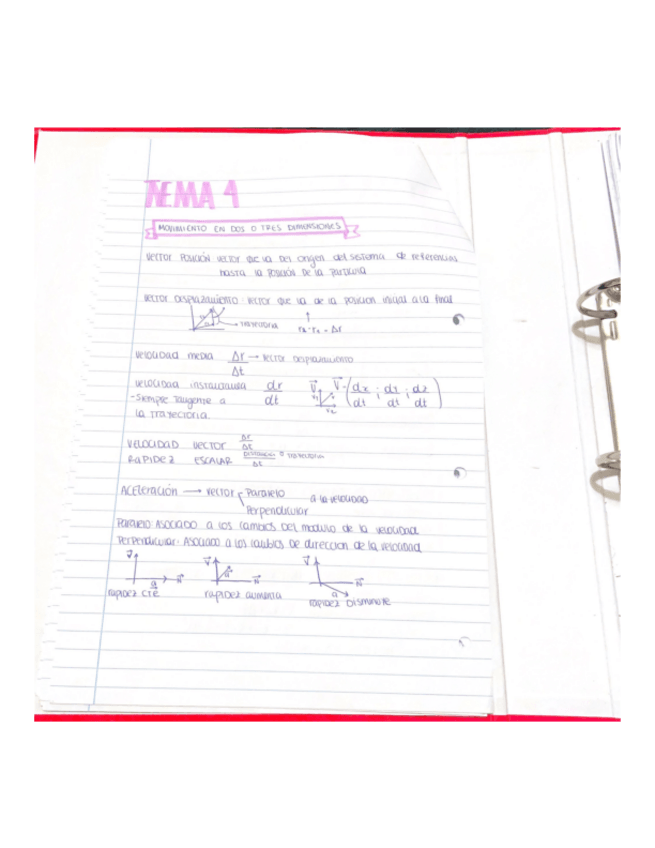 TEMA 4
MOVIMIENTO EN DOS O TRES DIMENSIONES
VECTOR POSICIÓN VECTOR QUE VA DEL origen del sistema de referencias
hasta la POSICIÓN DE la PARTICULA
VECTOR DESPLAZAMIENTO: VECTOR QUE VA DE la POSICION INICIAL a la final
→ TRAYECTORIA
↑
= Δr
VELOCIDAD MEDIA Δr → VECTOR DESPLAZAMIENTO
Δt
VELOCIDAD INSTANTANEA dr
dt
V = (dx/dt ; dy/dt ; dz/dt)
-SIEMPRE TANGENTE a
la TRAYECTORIA.
VELOCIDAD VECTOR Δr
Δt
RAPIDEZ ESCALAR DISTANCIA TRAYECTORIA
Δt
ACELERACIÓN → VECTOR PARALELO a la VELOCIDAD
PERPENDICULAR
PARALELO ASOCIADO a los CAMBIOS DEL MODULO DE la VELOCIDAD
PERPENDICULAR: ASOCIADO a los CAMBIOS DE DIRECCION DE la VELOCIDAD
V N a
V a N
V N a
RAPIDEZ CTE RAPIDEZ AUMENTA RAPIDEZ DISMINUYE